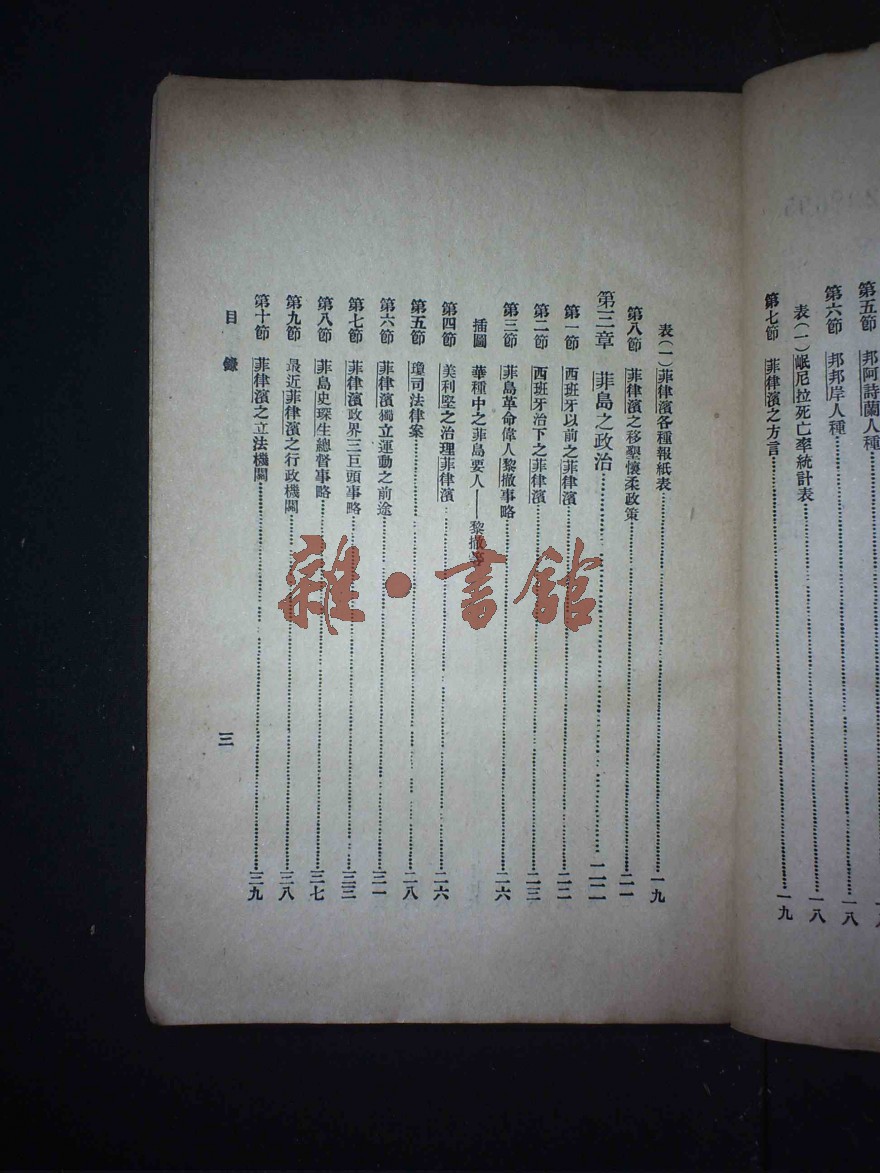 第五節 邦阿詩蘭人種
第六節 邦邦岸人種……一八
表(一)岷尼拉死亡率統計表……一八
第七節 菲律濱之方言……一九
表(一)菲律濱各種報紙表……一九
第八節 菲律濱之移聖懷柔政策……二一
第三章 菲島之政治……二二
第一節 西班牙以前之菲律濱……二二
第二節 西班牙治下之菲律濱……二三
第三節 菲島革命偉人黎撤事略……二六
插圖 華種中之菲島要人——黎撤等
第四節 美利堅之治理菲律濱……二六
第五節 瓊司法律案……二八
第六節 菲律濱獨立運動之前途……三一
第七節 菲律濱政界三巨頭事略……三三
第八節 菲島史琛生總督事略……三七
第九節 最近菲律濱之行政機關……三八
第十節 菲律濱之立法機關……三九
目錄
三
雜·書館